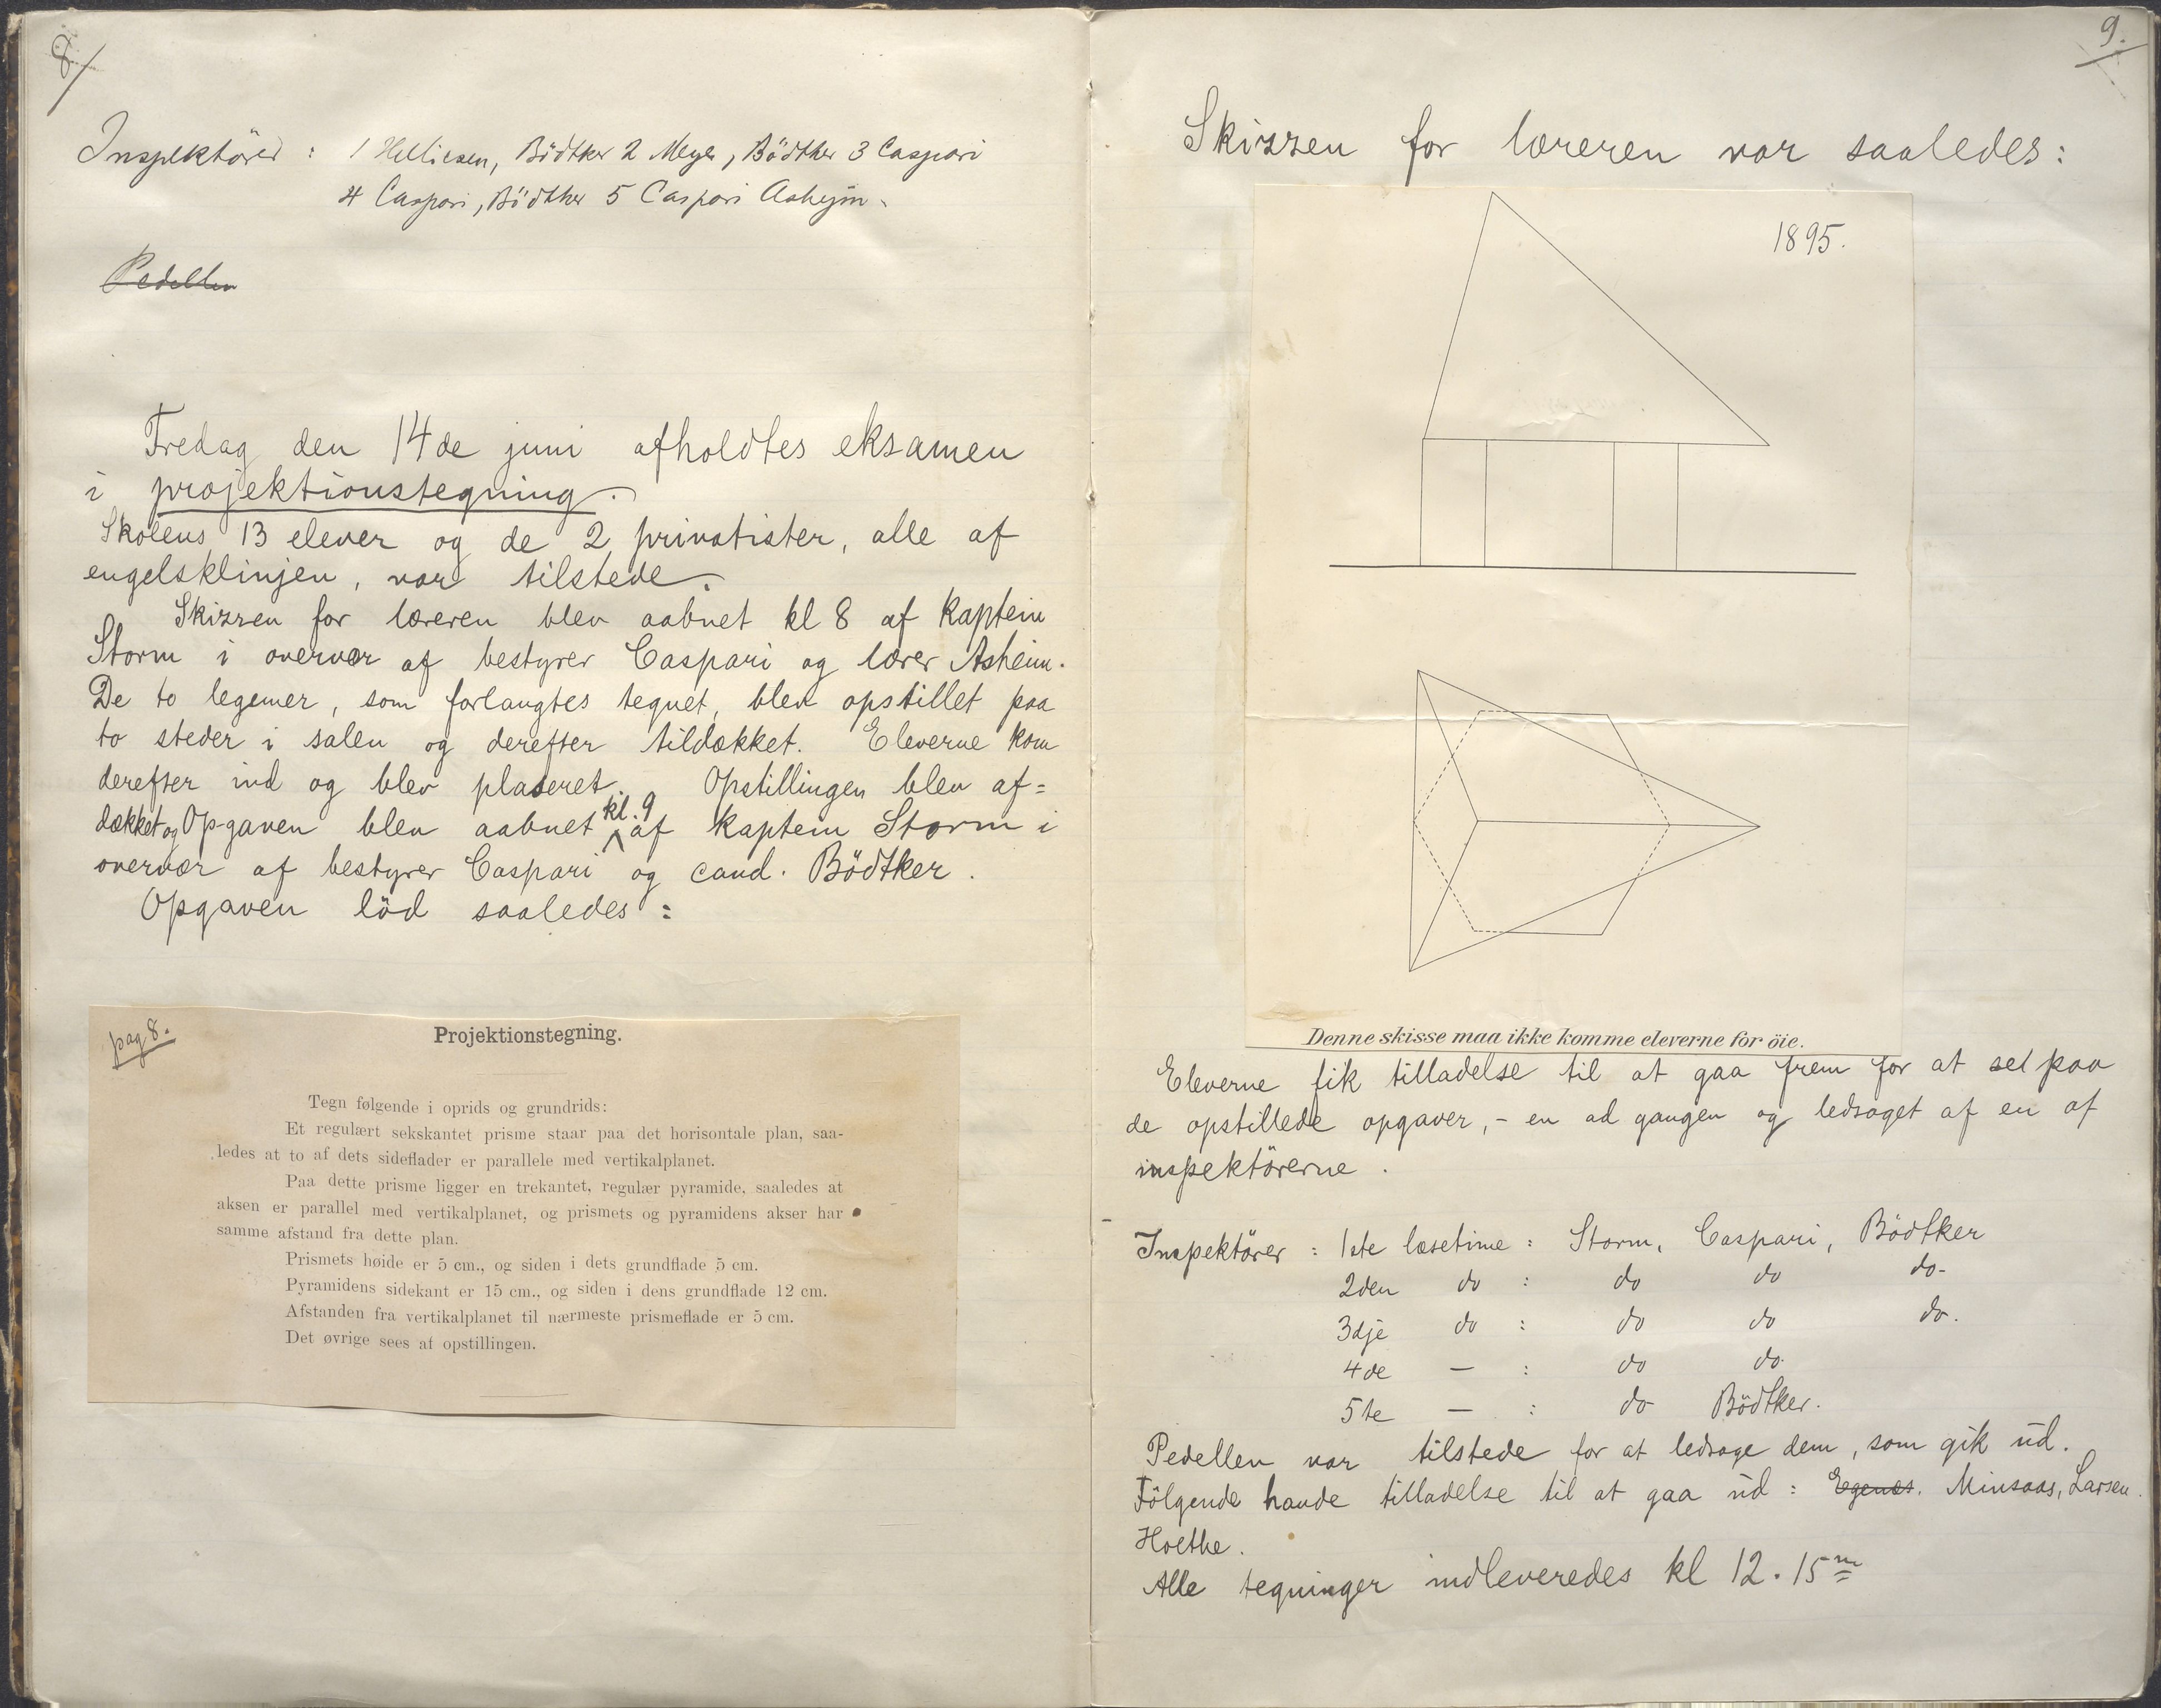 8/
Inspektører : 1 Helliesen, Bödtker 2 Meyer, Bödtker 3 Caspari
4 Caspari, Bödtker 5 Caspari Asheim.
Pedellen
Fredag den 14de juni afholdtes eksamen
i projektionstegning.
Skolens 13 elever og de 2 privatister, alle af
engelsklinjen, var tilstede.
Skizzen for læreren blev aabnet kl 8 af Kaptein
Storm i overvær af bestyrer Caspari og lærer Asheim.
De to legemer, som forlangtes tegnet, blev opstillet paa
to steder i salen og derefter tildækket. Eleverne kom
derefter ind og blev plaseret. Opstillingen blev af=
dækket og Opgaven blev aabnet kl. 9 af kaptein Storm i
overvær af bestyrer Caspari og cand. Bödtker.
Opgaven löd saaledes:
pag 8.
Projektionstegning.
Tegn følgende i oprids og grundrids:
Et regulært sekskantet prisme staar paa det horisontale plan, saa-
ledes at to af dets sideflader er parallele med vertikalplanet.
Paa dette prisme ligger en trekantet, regulær pyramide, saaledes at
aksen er parallel med vertikalplanet, og prismets og pyramidens akser har
samme afstand fra dette plan.
Prismets høide er 5 cm., og siden i dets grundflade 5 cm.
Pyramidens sidekant er 15 cm., og siden i dens grundflade 12 cm.
Afstanden fra vertikalplanet til nærmeste prismeflade er 5 cm.
Det øvrige sees af opstillingen.
9.
Skizzen for læreren var saaledes:
1895.
Denne skisse maa ikke komme eleverne for öie.
Eleverne fik tilladelse til at gaa frem for at se paa
de opstillede opgaver, - en ad gangen og ledsaget af en af
inspektörerne.
Inspektörer : 1ste læsetime : Storm, Caspari, Bödtker
2den do : do do do-
3dje do : do do do.
4de — : do do.
5te — : do Bödtker.
Pedellen var tilstede for at ledsage dem, som gik ud.
Fölgende havde tilladelse til at gaa ud : Egenæs. Minsaas, Larsen.
Holthe.
Alle tegninger indleveredes kl 12.15m